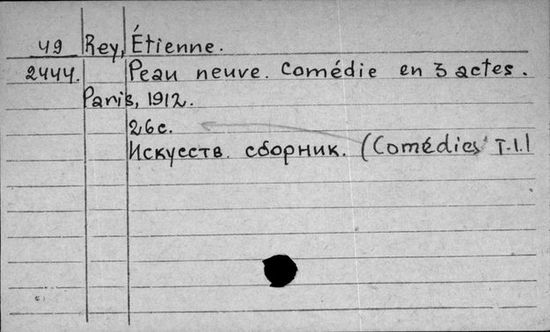 49 Rey, Étienne.
2444. Peau neuve. Comédie en 3 actes.
Paris, 1912.
26 с.
Искусств. сборник. (Comédies T.1.)